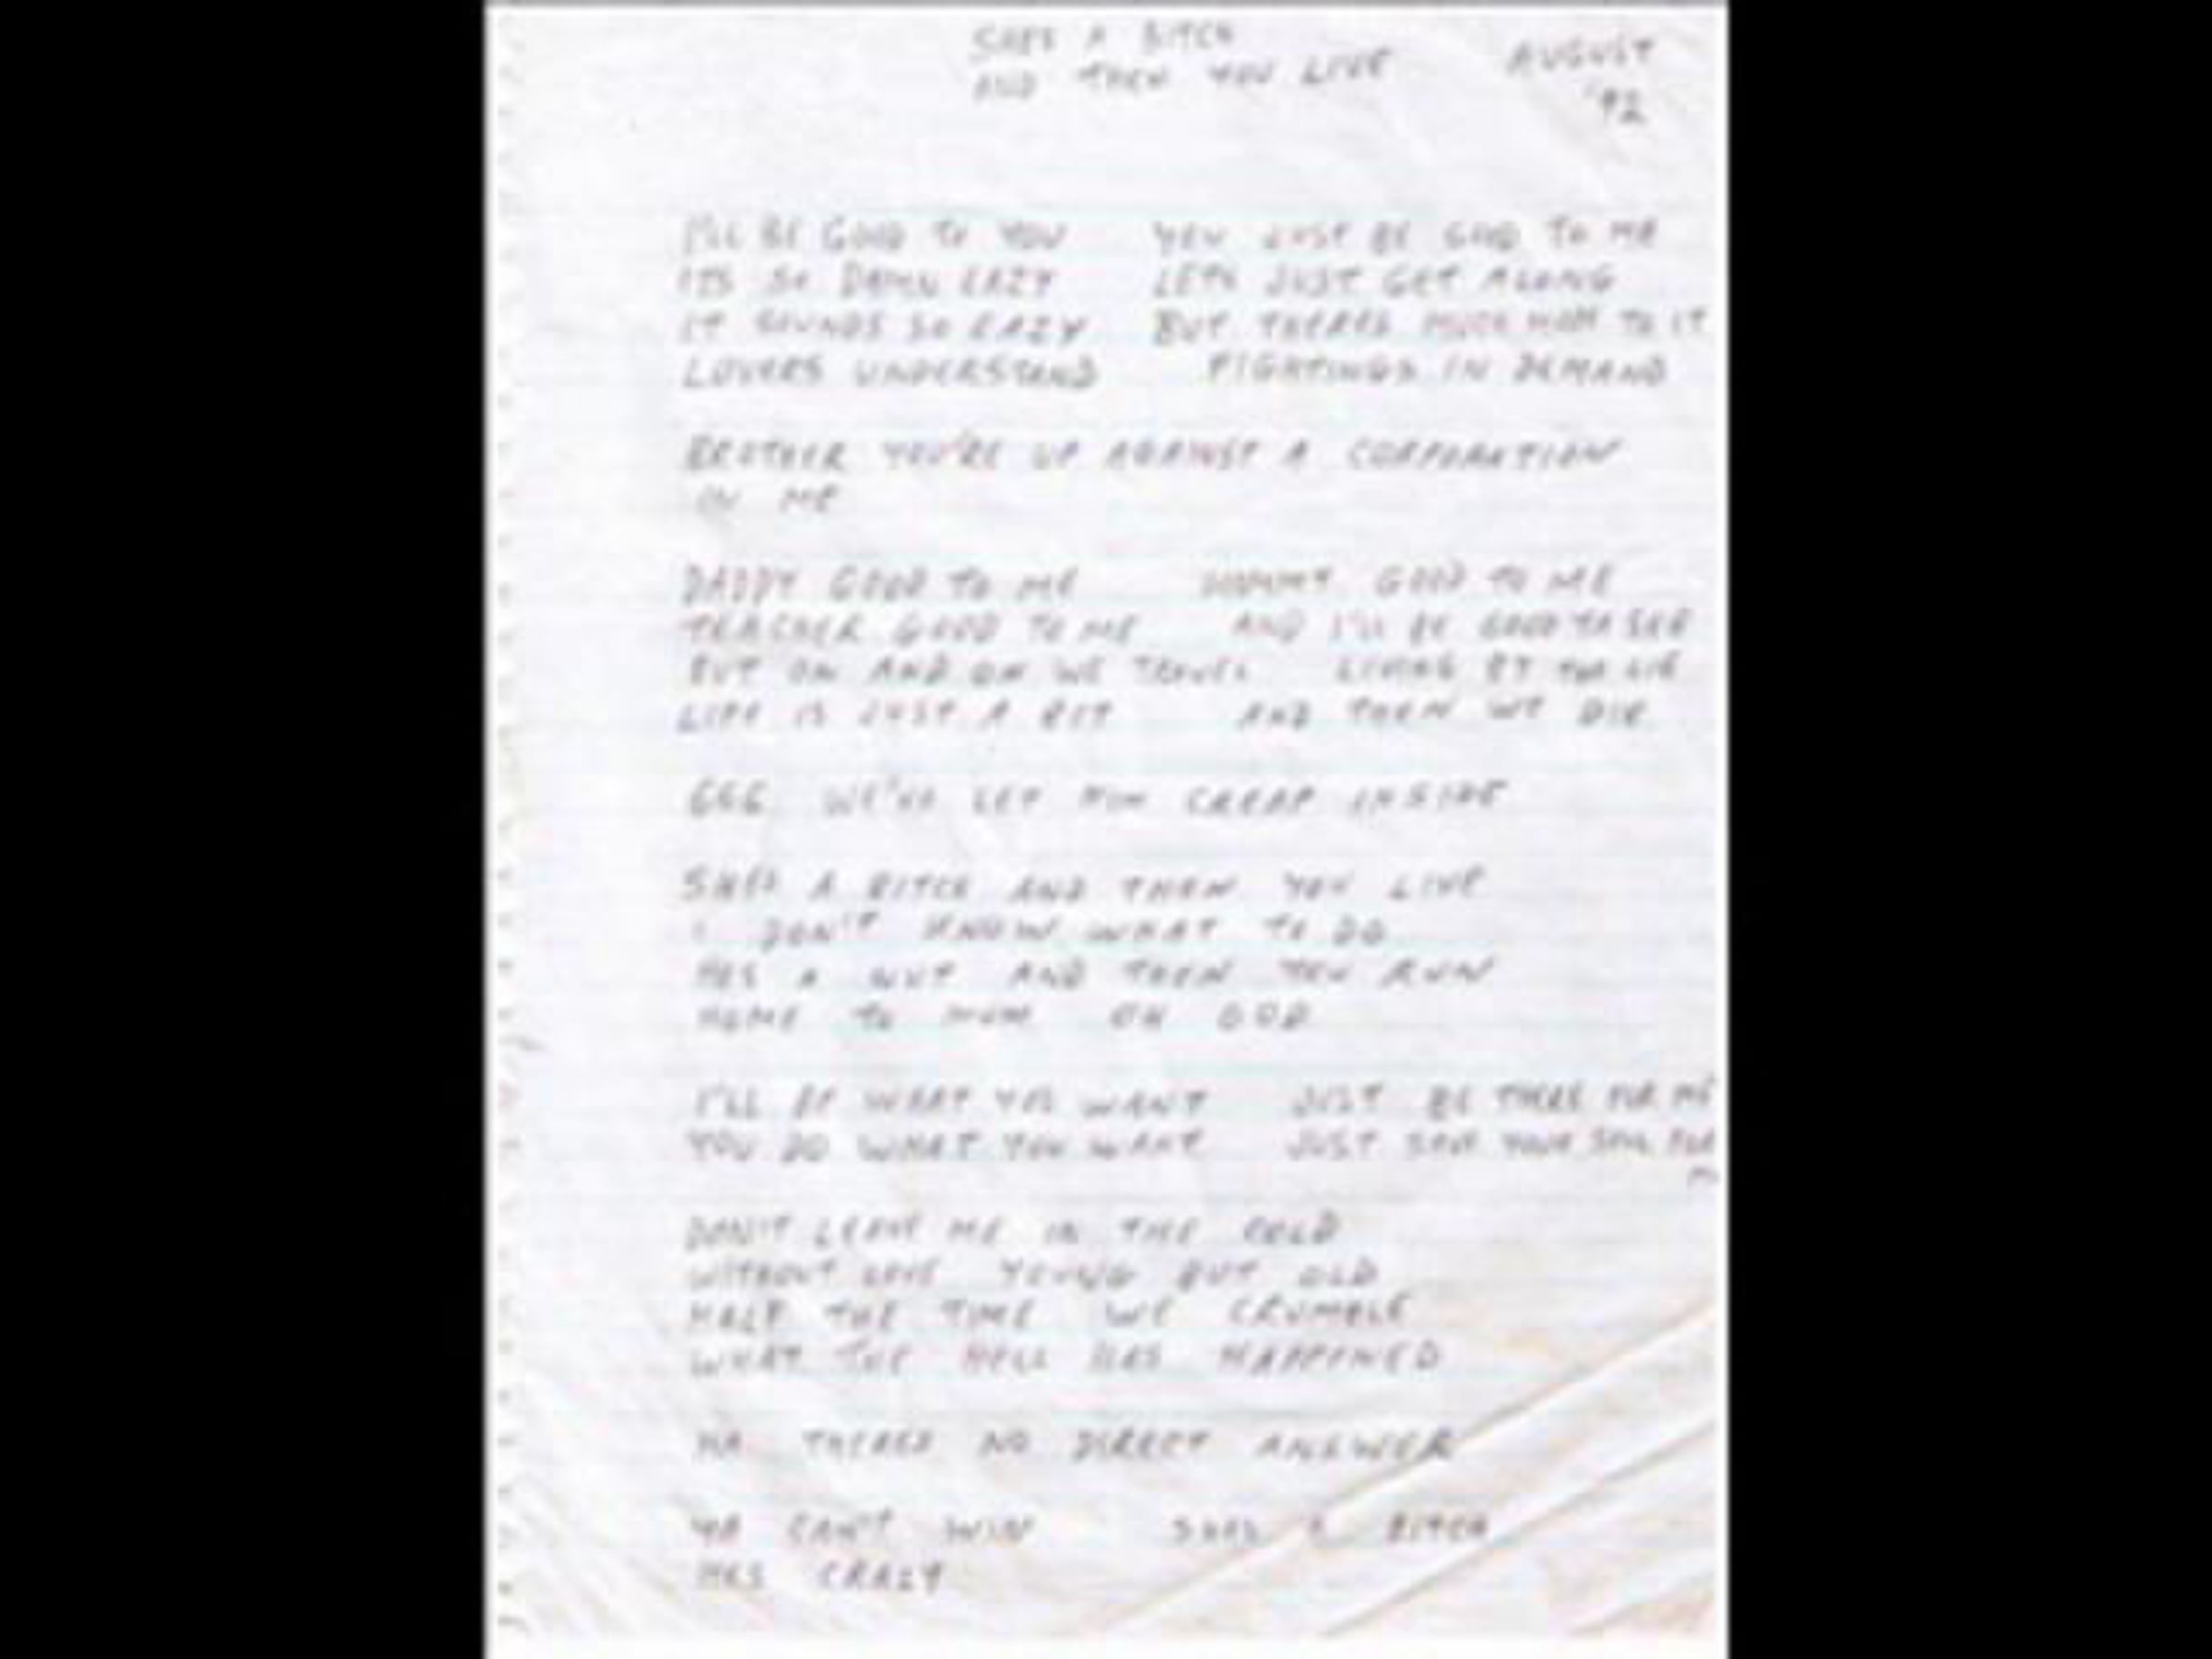 SHES A BITCH
AND THEN YOU LIVE
AUGUST
'92
I'LL BE GOOD TO YOU YOU JUST BE GOOD TO ME
ITS SO DAMN EAZY LETS JUST GET ALONG
IT SOUNDS SO EAZY BUT THERES MUCH MORE TO IT
LOVERS UNDERSTAND FIGHTINGS IN DEMAND
BROTHER YOU'RE UP AGAINST A CORPORATION
IN ME
DADDY GOOD TO ME MOMMY GOOD TO ME
TEACHER GOOD TO ME AND I'LL BE GOOD TA SEE
BUT ON AND ON WE TRAVEL LIVING BY THE LIE
LIFE IS JUST A BIT AND THEN WE DIE
666 WE'VE LET HIM CREAP INSIDE
SHES A BITCH AND THEN YOU LIVE
I DON'T KNOW WHAT TO DO
HES A NUT AND THEN YOU RUN
HOME TO MOM OH GOD
I'LL BE WHAT YOU WANT JUST BE THERE FOR ME
YOU DO WHAT YOU WANT JUST SAVE YOUR SOUL FOR
DON'T LEAVE ME IN THE COLD
WITHOUT LOVE YOUNG BUT OLD
HALF THE TIME WE CRUMBLE
WHAT THE HELL HAS HAPPINED
HA THERES NO DIRECT ANSWER
YA CAN'T WIN SHES A BITCH
HES CRAZY